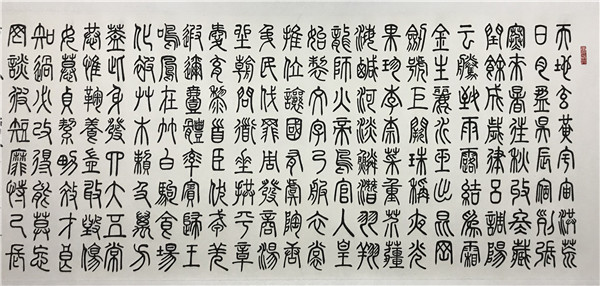 天地玄黃宇宙洪荒
日月盈昃辰宿列張
寒來暑往秋收冬藏
閏餘成歲律呂調陽
雲騰致雨露結為霜
金生麗水玉出昆岡
劍號巨闕珠稱夜光
果珍李柰菜重芥薑
海鹹河淡鱗潛羽翔
龍師火帝鳥官人皇
始製文字乃服衣裳
推位讓國有虞陶唐
弔民伐罪周發商湯
坐朝問道垂拱平章
愛育黎首臣伏戎羌
遐邇壹體率賓歸王
鳴鳳在竹白駒食場
化被草木賴及萬方
蓋此身髮四大五常
恭惟鞠養豈敢毀傷
女慕貞絜男效才良
知過必改得能莫忘
罔談彼短靡恃己長